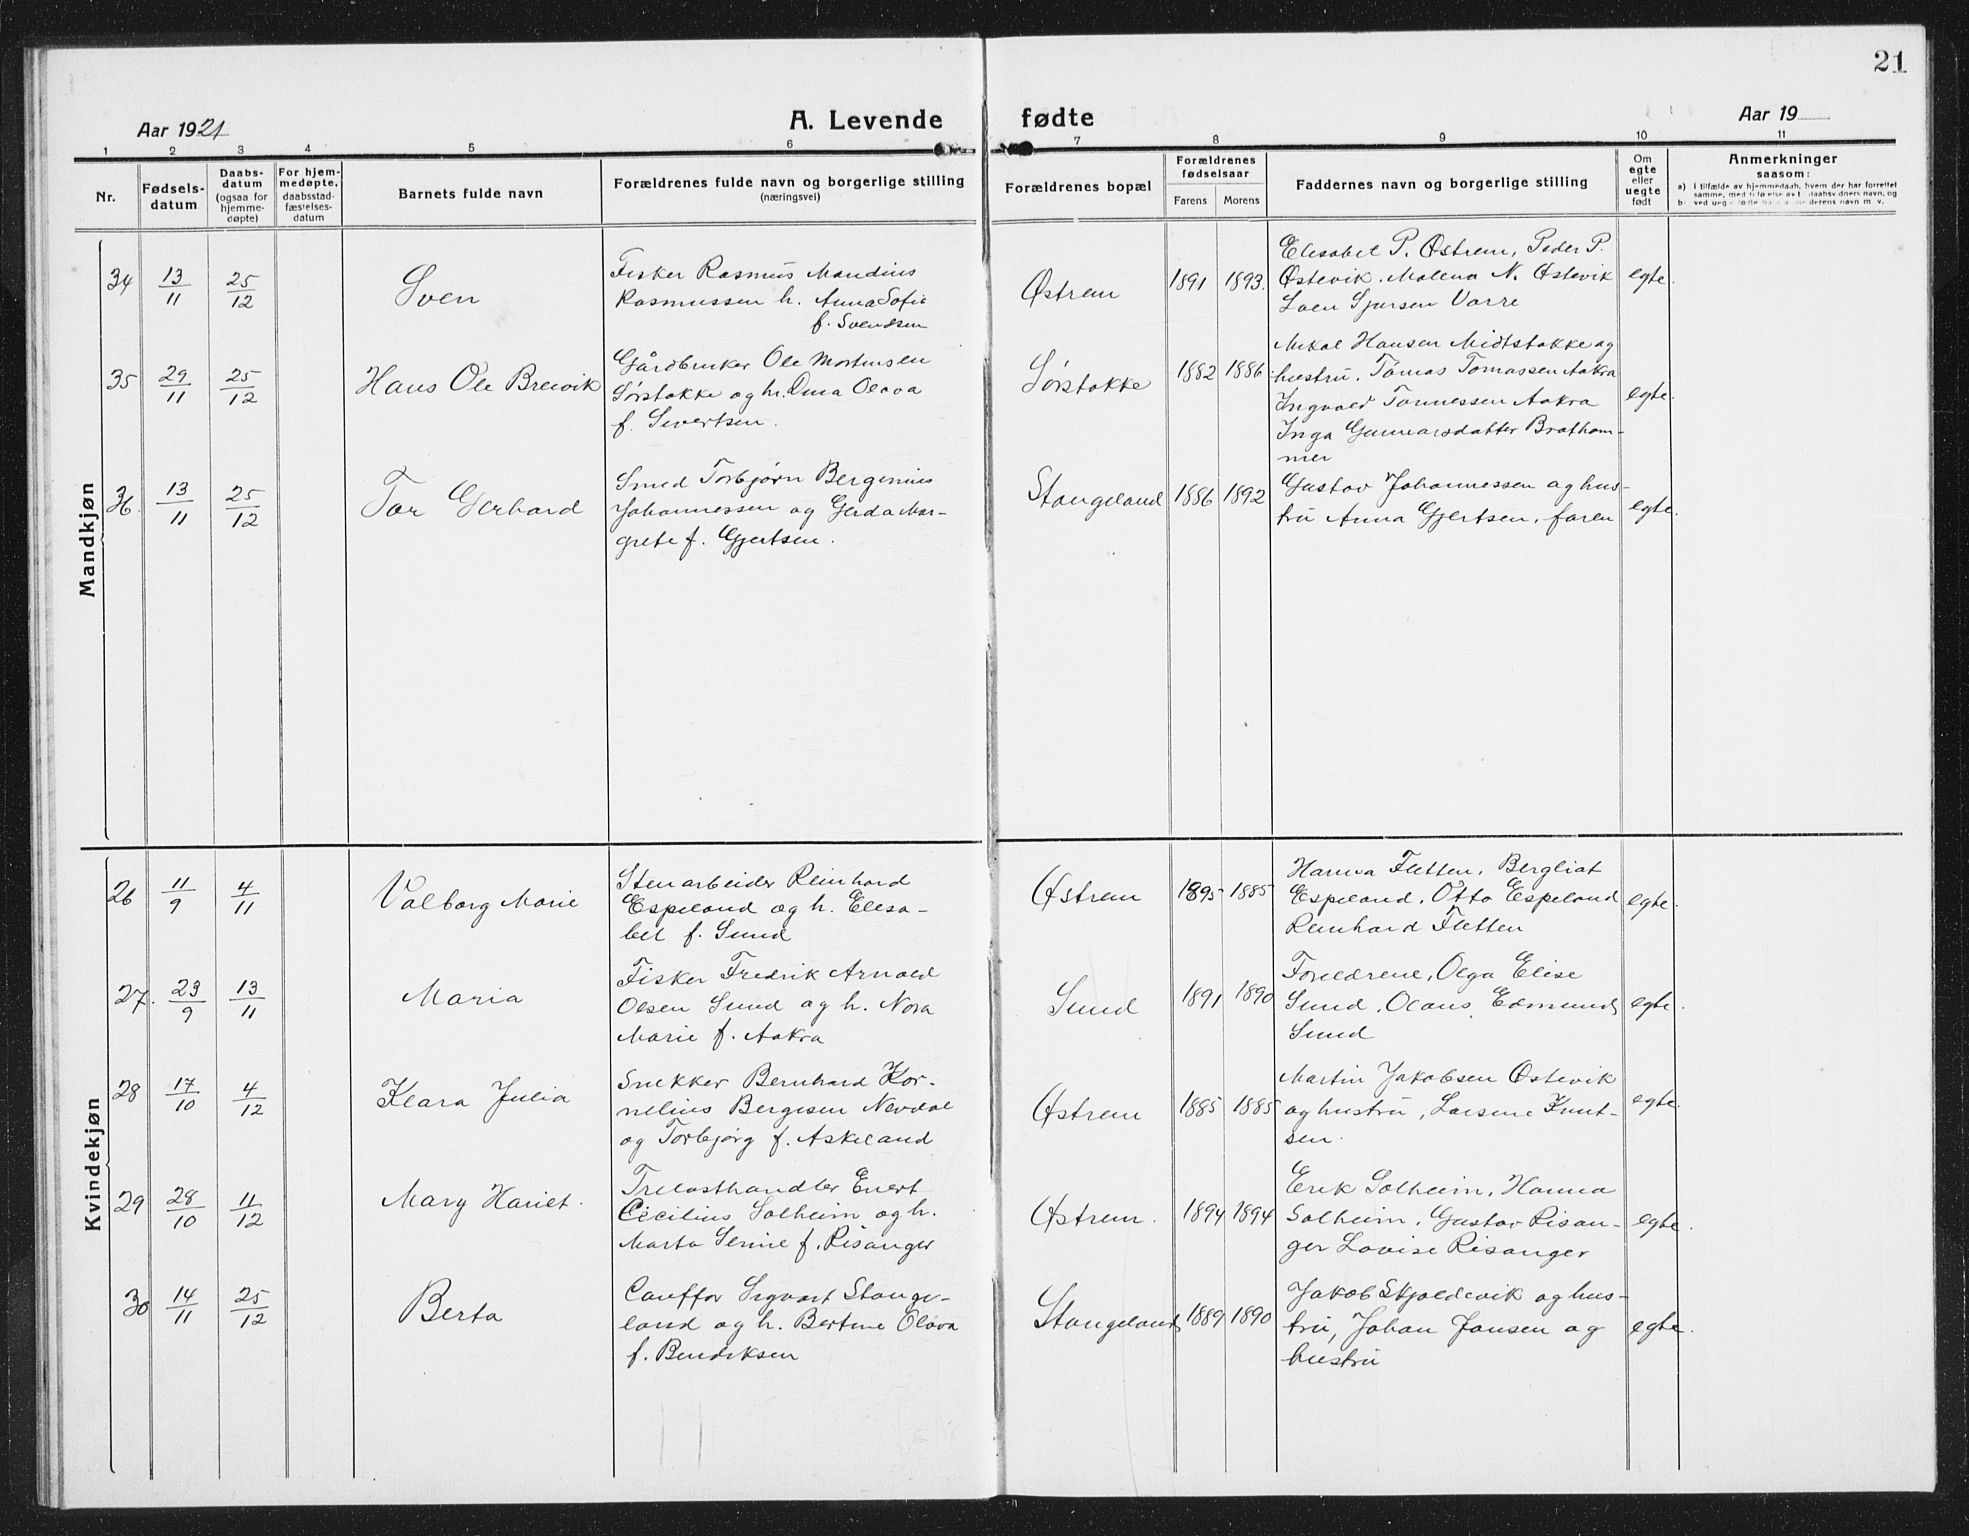 21
Aar 1921
A. Levende fødte
Aar 19
1 2 3 4 5 6 7 8 9 10 11
Nr.
Fødsels-
datum
Daabs-
datum
(ogsaa for
hjemme-
døpte)
For hjem-
medøpte,
daabsstad-
fæstelses-
datum
Barnets fulde navn
Forældrenes fulde navn og borgerlige stilling
(næringsvei)
Forældrenes bopæl
Forældrenes
fødselsaar
Farens Morens
Faddernes navn og borgerlige stilling
Om
egte
eller
uegte
født
Anmerkninger
saasom:
a) I tilfælde av hjemmedaab, hvem der har forrettet
samme, med tilføielse av daabsvidners navn, og
Mandkjøn
34 13/11 25/12
Sven
Fisker Rasmus Mandius
Rasmussen h. Anna Sofie
f. Svendsen
Østrem
1891 1893.
Elisabet P. Østrem, Peder P.
Østevik. Malena N. Østevik
Sjursen Varre
egte.
35 29/11 25/12
Hans Ole Breivik
Gårdbruker Ole Mortensen
Sørstokke og h. Olava
f. Sivertsen.
Sørstokke
1882 1886
Mikal Hansen Midtstokke og
hustru. Tomas Tomassen Aakra
Ingvald Tønnessen Aakra
Inga Gunnarsdatter Bratham-
mer
egte.
36. 13/11 25/12
Tor Gerhard
Smed Torbjørn Berginius
Johannessen og Gerda Mar-
grete f. Gjertsen.
Stangeland
1886 1892
Gustav Johannessen og hus-
tru Anna Gjertsen, faren
egte.
Kvindekjøn
26 11/9 4/11
Valborg Marie
Stenarbeider Reinhard
Espeland og h. Elisa-
bet f. Sund
Østrem
1895 1885
Hanna Fletten. Bergliot
Espeland. Otto Espeland
Reinhard Fletten
egte.
27. 23/9 13/11
Maria
Fisker Fredrik Arnold
Olsen Sund og h. Nora
Marie f. Aakra
Sund
1891 1890
Foreldrene, Olga Elise
Sund. Olaus Edmund
Sund
egte.
28 17/10 4/12
Klara Julia
Snekker Bernhard Kor-
nelius Bergesen Nevdal
og Torbjørg f. Askeland
Østrem
1885 1885
Martin Jakobsen Østevik
og hustru, Larsine Knut-
sen.
egte.
29 28/10 11/12
Mary Hariet.
Trelasthandler Enert
Cicilius Solheim og h.
Marta Serine f. Risanger
Østrem.
1894 1894
Erik Solheim, Hanna
Solheim. Gustav Risan-
ger Lovise Risanger
egte.
30 14/11 25/12
Berta
Sigvart Stange-
land og h. Bertine Olava
f. Bendiksen
Stangeland
1889 1890
Jakob Skjoldevik og hus-
tru, Johan Jansen og
hustru
egte.